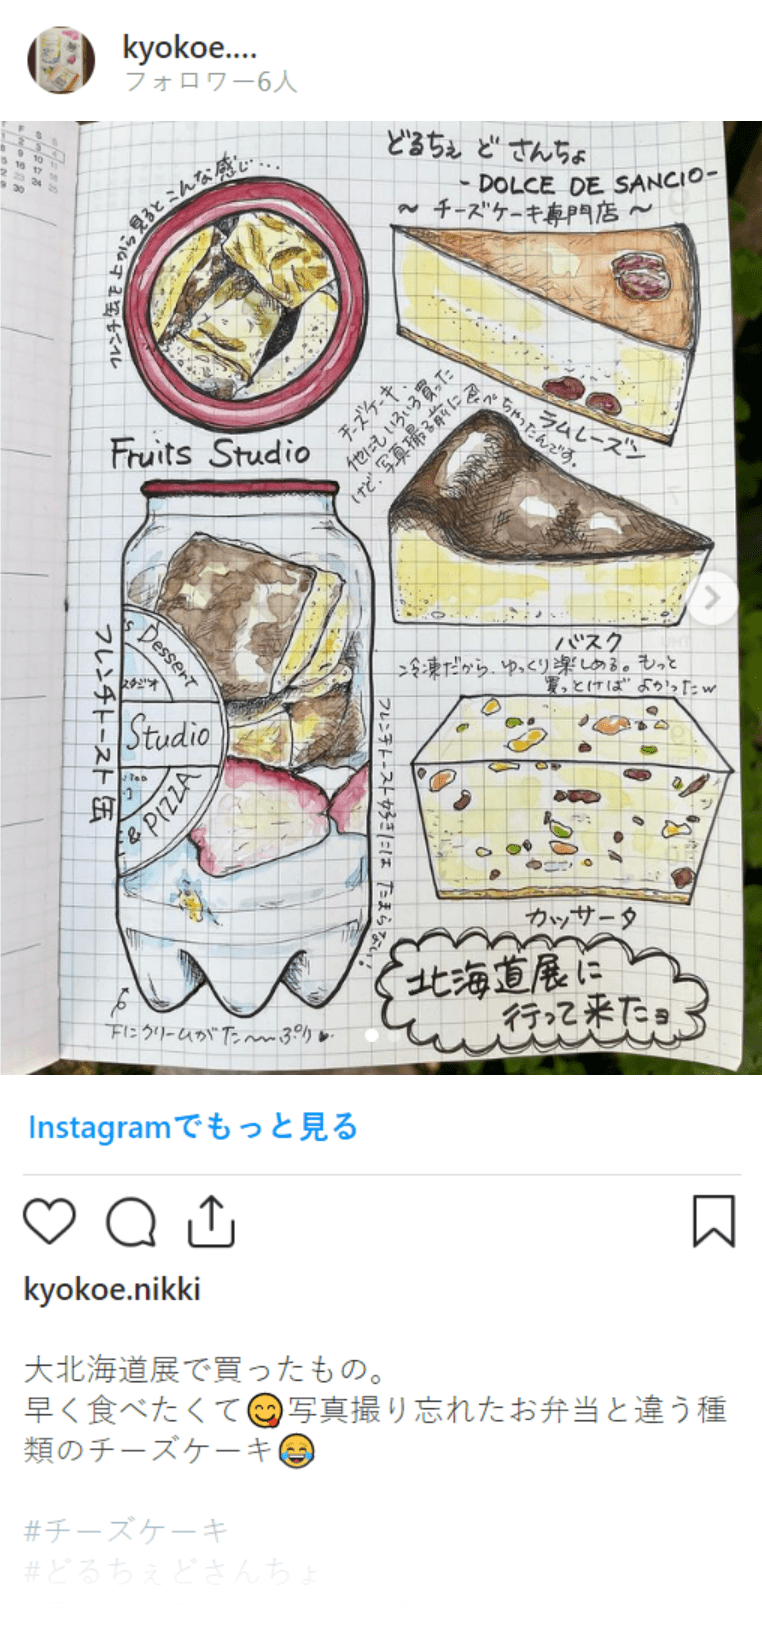 kyokoe....
フォロワー6人
F S S
1 2 3 4
8 9 10 11
15 16 17 18
22 23 24 25
29 30
缶を上から見るとこんな感じ…
どるちぇ ど さんちょ
- DOLCE DE SANCIO -
～ チーズケーキ専門店 ～
チーズケーキ、
他にもいろいろ買った
けど、写真撮る前に食べちゃったんです。
ラムレーズン
Fruits Studio
フレンチトースト缶
's Dessert
スタジオ
Studio
& PIZZA
フレンチトースト好きには たまらない!
下にクリームがた〜〜ぷり
バスク
冷凍だから、ゆっくり楽しめる。もっと
買っとけば よかったw
カッサータ
北海道展に
行って来たョ
Instagramでもっと見る
kyokoe.nikki
大北海道展で買ったもの。
早く食べたくて😋写真撮り忘れたお弁当と違う種
類のチーズケーキ😂
#チーズケーキ
#どるちぇどさんちょ